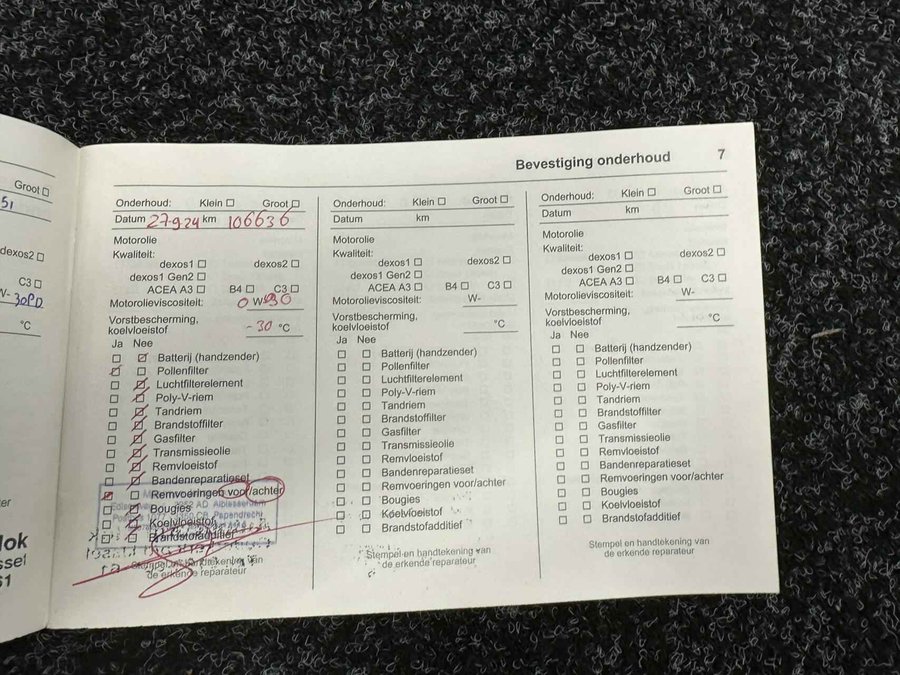 Groot
51
dexos2
C3
W-30PD
°C
ter
lok
ssel
61
Bevestiging onderhoud 7
Onderhoud: Klein Groot
Datum 27-9-24 km 106636
Motorolie
Kwaliteit:
dexos1 dexos2
dexos1 Gen2
ACEA A3 B4 C3
Motorolieviscositeit: 0 W-30
Vorstbescherming,
koelvloeistof -30 °C
Ja Nee
Batterij (handzender)
Pollenfilter
Luchtfilterelement
Poly-V-riem
Tandriem
Brandstoffilter
Gasfilter
Transmissieolie
Remvloeistof
Bandenreparatieset
Remvoeringen voor/achter
Bougies
Koelvloeistof
Brandstofadditief
2952 AD Alblasserdam
CB Papendrecht
Stempel en handtekening van
de erkende reparateur
Onderhoud: Klein Groot
Datum km
Motorolie
Kwaliteit:
dexos1 dexos2
dexos1 Gen2
ACEA A3 B4 C3
Motorolieviscositeit: W-
Vorstbescherming,
koelvloeistof °C
Ja Nee
Batterij (handzender)
Pollenfilter
Luchtfilterelement
Poly-V-riem
Tandriem
Brandstoffilter
Gasfilter
Transmissieolie
Remvloeistof
Bandenreparatieset
Remvoeringen voor/achter
Bougies
Koelvloeistof
Brandstofadditief
Stempel en handtekening van
de erkende reparateur
Onderhoud: Klein Groot
Datum km
Motorolie
Kwaliteit:
dexos1 dexos2
dexos1 Gen2
ACEA A3 B4 C3
Motorolieviscositeit: W-
Vorstbescherming,
koelvloeistof °C
Ja Nee
Batterij (handzender)
Pollenfilter
Luchtfilterelement
Poly-V-riem
Tandriem
Brandstoffilter
Gasfilter
Transmissieolie
Remvloeistof
Bandenreparatieset
Remvoeringen voor/achter
Bougies
Koelvloeistof
Brandstofadditief
Stempel en handtekening van
de erkende reparateur